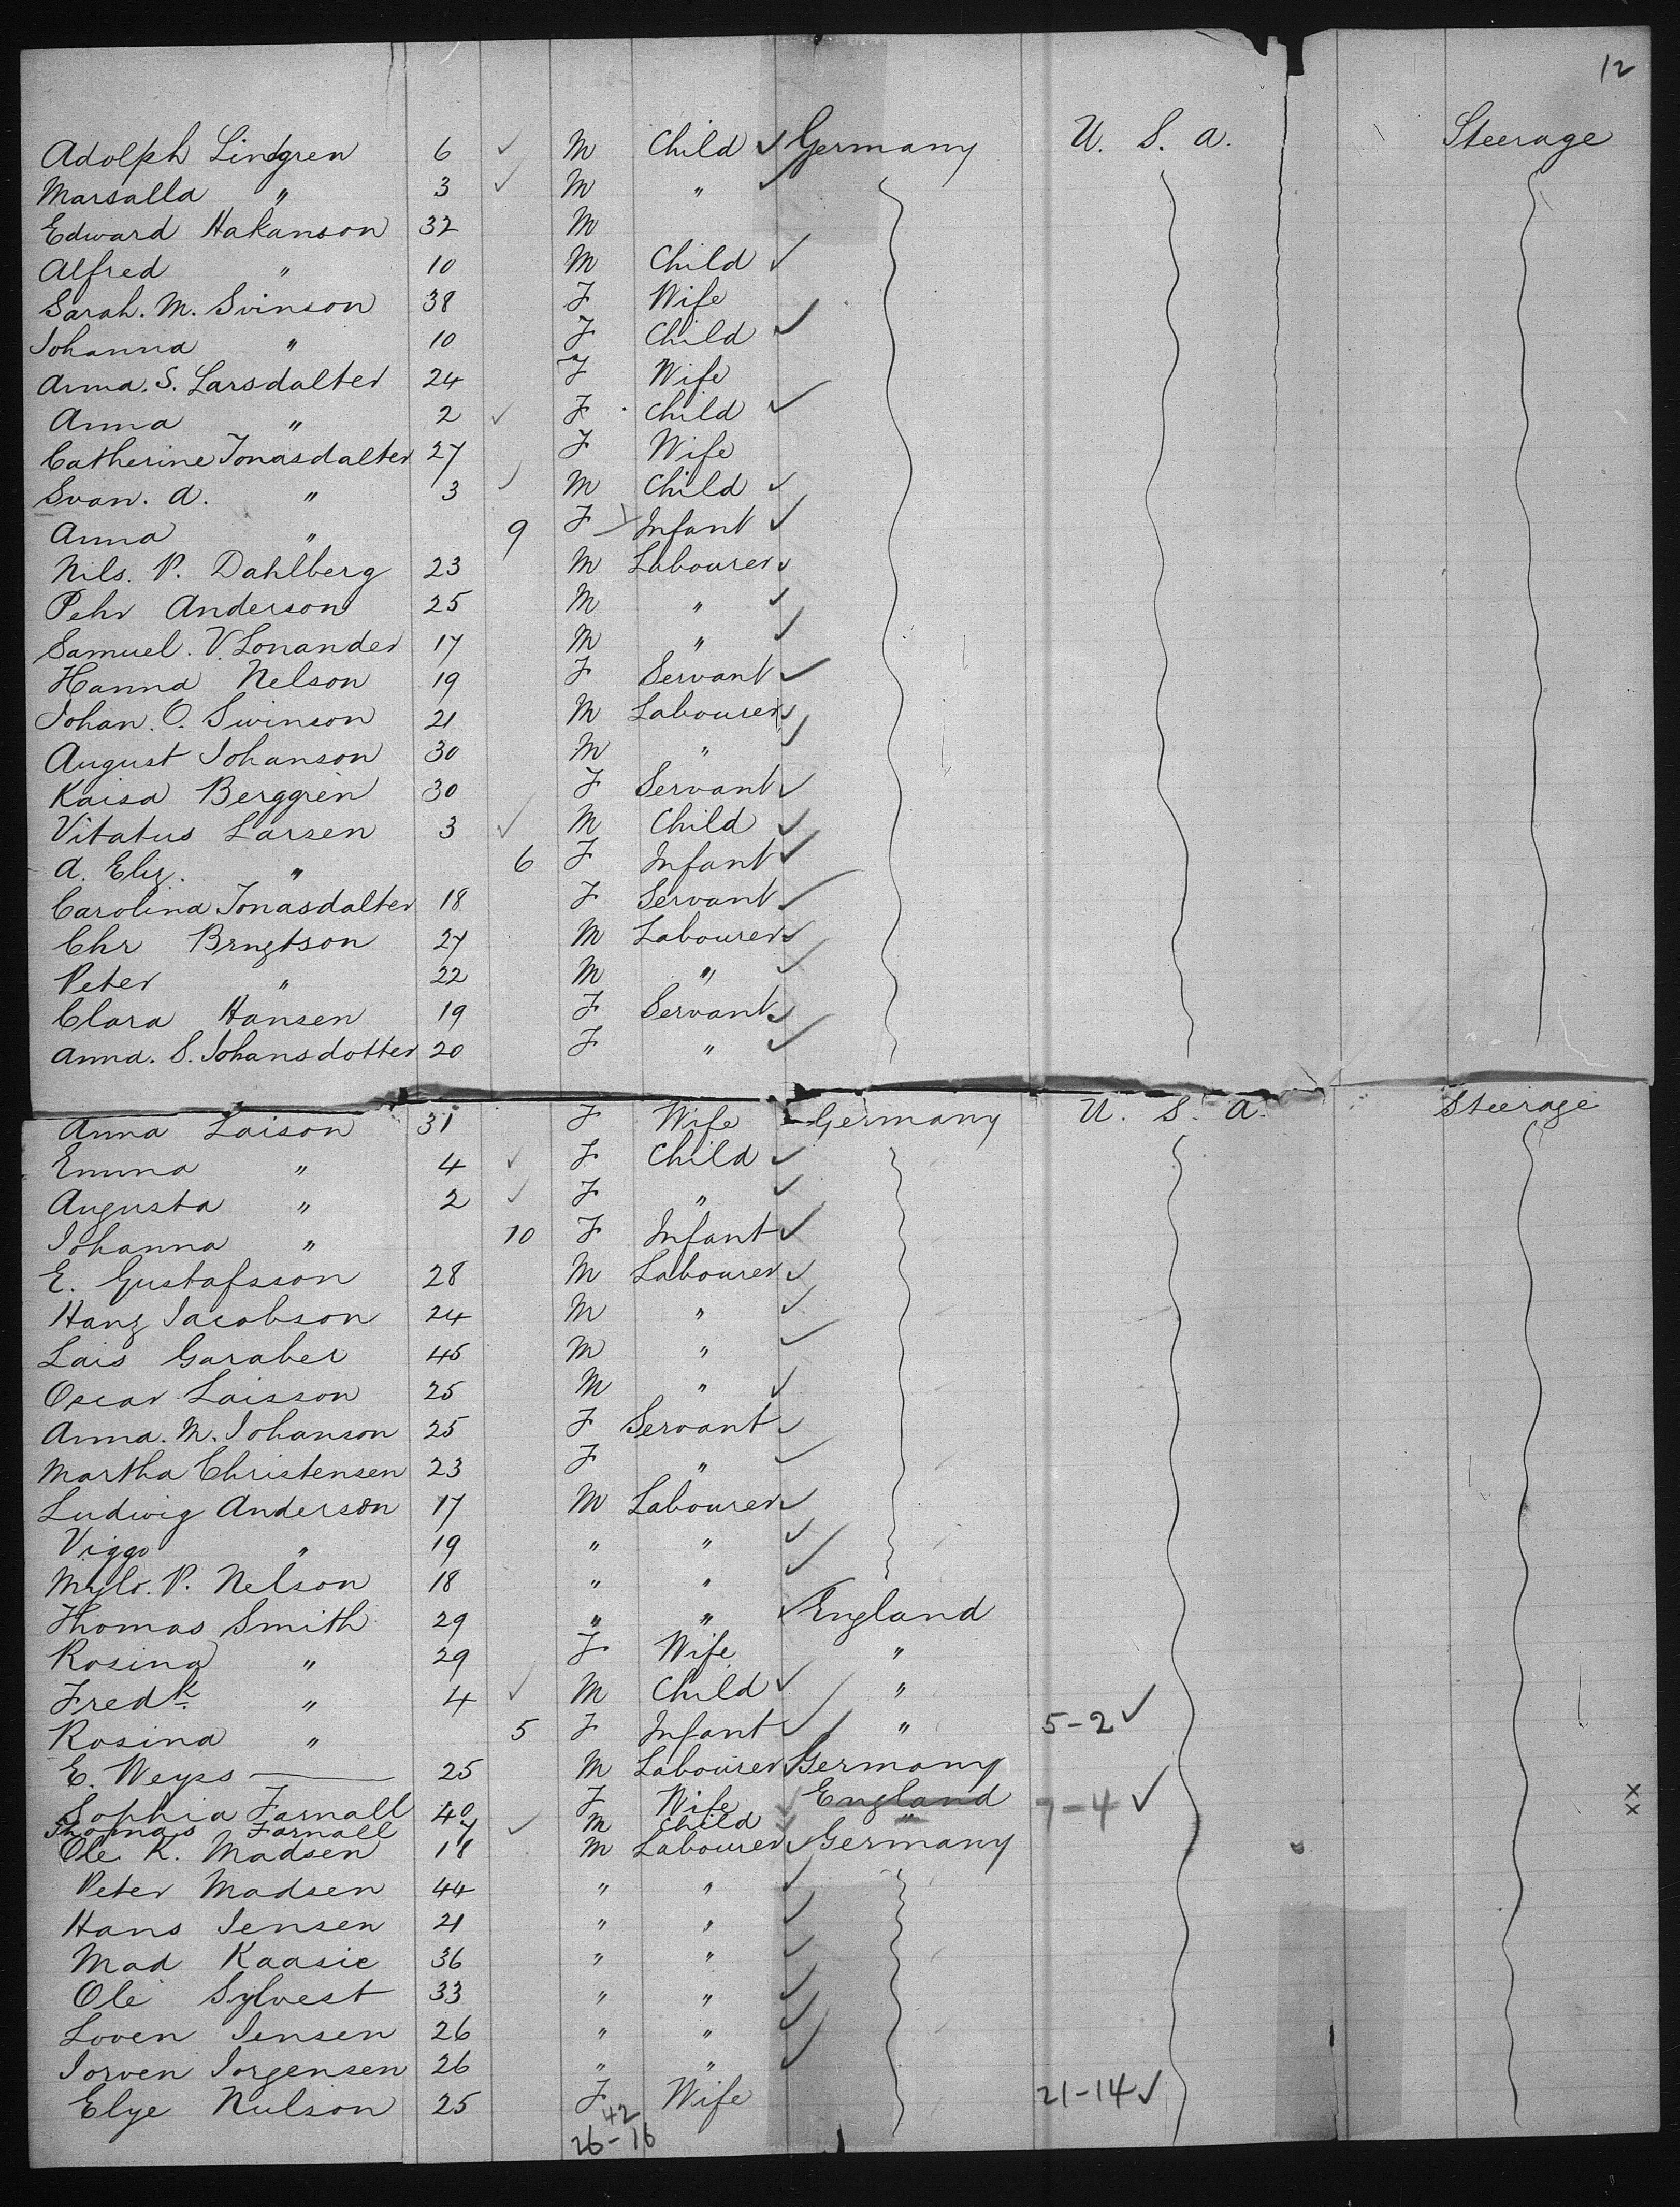 12
Adolph Lindgren 6 ✓ M Child ✓ Germany U. S. A. Steerage
Marsalla " 3 ✓ M " ✓
Edward Hakanson 32 M
Alfred " 10 M Child ✓
Sarah. M. Svinson 38 F Wife
Johanna " 10 F Child ✓
Anna. S. Larsdalter 24 F Wife
Anna " 2 ✓ F Child ✓
Catherine Jonasdalter 27 F Wife
Svan. A. " 3 ✓ M Child ✓
Anna " 9 F Infant ✓
Nils. P. Dahlberg 23 M Labourer ✓
Pehr Anderson 25 M " ✓
Samuel. V. Lonander 17 M " ✓
Hanna Nelson 19 F Servant ✓
Johan. O. Swinson 21 M Labourer ✓
August Johanson 30 M " ✓
Kaisa Berggren 30 F Servant ✓
Vitatus Larsen 3 ✓ M Child ✓
A. Eliz. " 6 F Infant ✓
Carolina Jonasdalter 18 F Servant ✓
Chr Brngtson 27 M Labourer ✓
Peter " 22 M " ✓
Clara Hansen 19 F Servant ✓
Anna. S. Johansdotter 20 F " ✓
Anna Laison 31 F Wife Germany U. S. A. Steerage
Emma " 4 ✓ F Child ✓
Augusta " 2 ✓ F " ✓
Johanna " 10 F Infant ✓
E. Gustafsson 28 M Labourer ✓
Hanz Jacobson 24 M " ✓
Lais Garaber 45 M " ✓
Oscar Laisson 25 M " ✓
Anna. M. Johanson 25 F Servant ✓
Martha Christensen 23 F " ✓
Ludwig Anderson 17 M Labourer ✓
Viggo " 19 " " ✓
Mylo. P. Nelson 18 " " ✓
Thomas Smith 29 " " ✓ England
Rosina " 29 F Wife "
Fredk. " 4 ✓ M Child ✓ "
Rosina " 5 F Infant ✓ " 5-2 ✓
E. Weyss 25 M Labourer Germany
Sophia Farnall 40 F Wife England 7-4 ✓ x
Thomas Farnall 7 ✓ M Child " x
Ole K. Madsen 18 M Labourer ✓ Germany
Peter Madsen 44 " " ✓
Hans Jensen 21 " " ✓
Mad Kaasie 36 " " ✓
Ole Sylvest 33 " " ✓
Loven Jensen 26 " " ✓
Jorven Jorgensen 26 " " ✓
Elye Nulson 25 F Wife 21-14 ✓
42
26-16